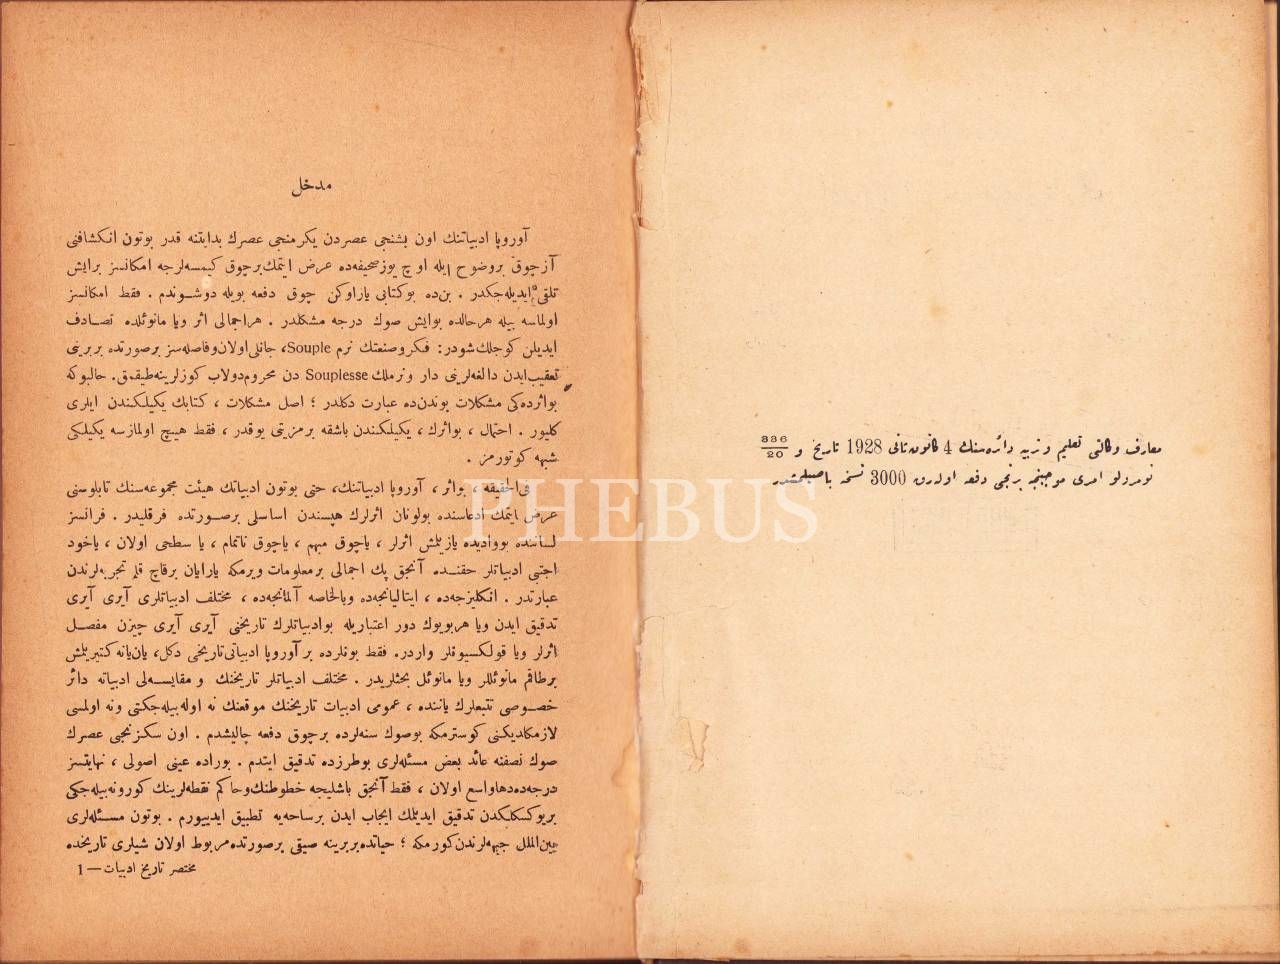 معارف وكالتی تعلیم و تربیه دائره‌سنك 4 كانون ثانی 1928 تاریخ و 336/20
نومرولو امری موجبنجه برنجی دفعه اوله‌رق 3000 نسخه باصیلمشدر
مدخل
آوروپا ادبیاتنك اون بشنجی عصردن یكرمنجی عصرك بدایتنه قدر بوتون انكشافنی
آزچوق بروضوح ایله اوچ یوزصحیفه‌ده عرض ایتمك برچوق كیمسه‌لرجه امكانسز برایش
تلقی ایدیله‌جكدر . بن‌ده بوكتابی یازاركن چوق دفعه بویله دوشوندم . فقط امكانسز
اولماسه بیله هرحالده بوایش صوك درجه مشكلدر . هراجمالی اثر ویا مانوئلده تصادف
ایدیلن كوجلك‌شودر: فكروصنعتك نرم Souple، جانلی‌اولان‌وفاصله‌سز برصورتده بربرینی
تعقیب‌ایدن دالغه‌لرینی دار ونرملك Souplesse دن محروم‌دولاب كوزلرینه‌طیقمق. حالبوكه
بواثرده‌كی مشكلات بوندن‌ده عبارت دكلدر ؛ اصل مشكلات ، كتابك یكیلكندن ایلری
كلیور . احتمال ، بواثرك ، یكیلكندن باشقه برمزیتی یوقدر ، فقط هیچ اولمازسه یكیلكی
شبهه كوتورمز .
فی‌الحقیقه ، بواثر ، آوروپا ادبیاتنك، حتی بوتون ادبیاتك هیئت مجموعه‌سنك تابلوسنی
عرض ایتمك ادعاسنده بولونان اثرلرك هپسندن اساسلی برصورتده فرقلیدر . فرانسز
لساننده بووادیده یازیلمش اثرلر ، یاچوق مبهم ، یاچوق ناتمام ، یا سطحی اولان ، یاخود
اجنبی ادبیاتلر حقنده آنجق پك اجمالی برمعلومات ویرمكه یارایان برقاچ قلم تجربه‌لرندن
عبارتدر . انكلیزجه‌ده ، ایتالیانجه‌ده وبالخاصه آلمانجه‌ده ، مختلف ادبیاتلری آیری آیری
تدقیق ایدن ویا هربویوك دور اعتباریله بوادبیاتلرك تاریخنی آیری آیری چیزن مفصل
اثرلر ویا قولكسیونلر واردر. فقط بونلرده بر آوروپا ادبیاتی‌تاریخی دكل، یان‌یانه كتیریلمش
برطاقم مانوئللر ویا مانوئل بحثلریدر . مختلف ادبیاتلر تاریخنك و مقایسه‌لی ادبیاته دائر
خصوصی تتبعلرك یاننده ، عمومی ادبیات تاریخنك موقعنك نه اوله‌بیله‌جكنی ونه اولمسی
لازمكلدیكنی كوسترمكه بوصوك سنه‌لرده برچوق دفعه چالیشدم . اون سكزنجی عصرك
صوك نصفنه عائد بعض مسئله‌لری بوطرزده تدقیق ایتدم . بوراده عینی اصولی ، نهایتسز
درجه‌ده‌دهاواسع اولان ، فقط آنجق باشلیجه خطوطنك‌وحاكم نقطه‌لرینك كورونه‌بیله‌جكی
بریوكسكلكدن تدقیق ایدیلمك ایجاب ایدن برساحه‌یه تطبیق ایدییورم . بوتون مسئله‌لری
بین‌الملل جبهه‌لرندن‌كورمكه ؛ حیاتده‌بربرینه صیقی برصورتده‌مربوط اولان شیلری تاریخده
مختصر تاریخ ادبیات — 1
PHEBUS